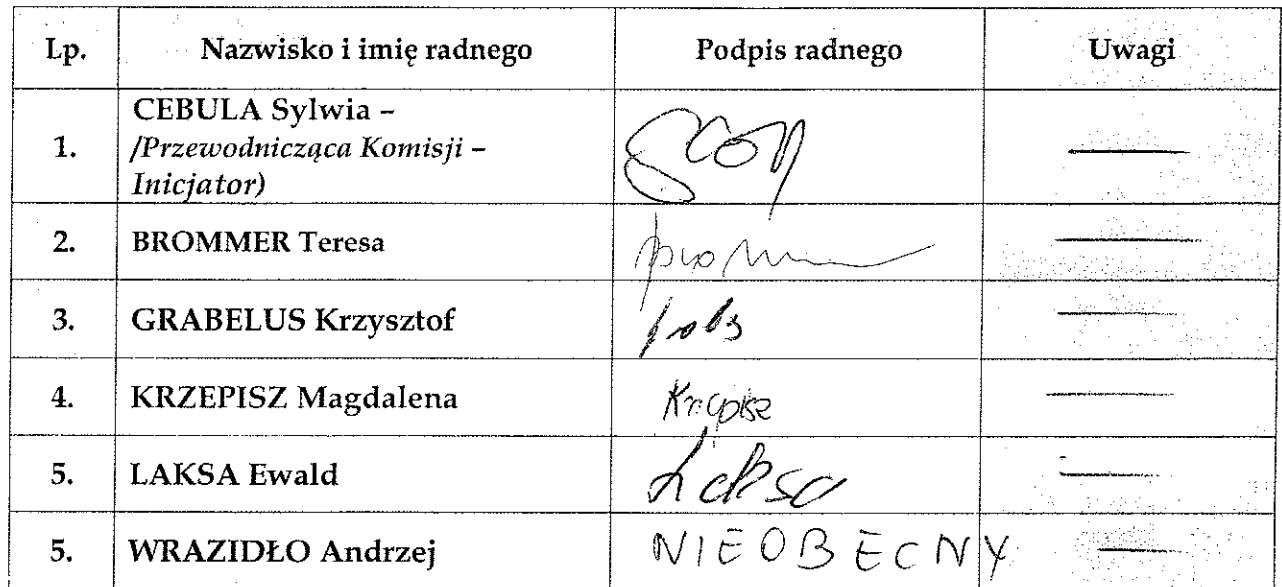 Lp. Nazwisko i imię radnego Podpis radnego Uwagi
CEBULA Sylwia –
1. /Przewodnicząca Komisji –
Inicjator)
2. BROMMER Teresa
3. GRABELUS Krzysztof
4. KRZEPISZ Magdalena
5. LAKSA Ewald Laksa
5. WRAZIDŁO Andrzej NIEOBECNY